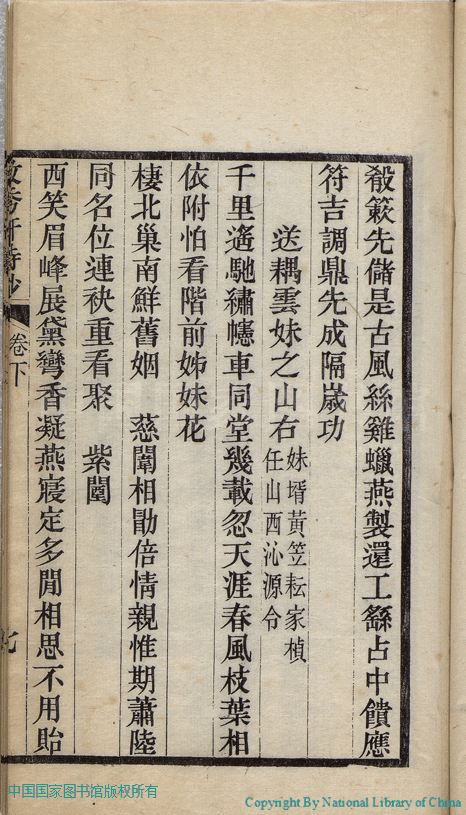 殽簌先儲是古風絲雞蠟燕製還工繇占中饋應
符吉調鼎先成隔歲功
送耦雲妹之山右妹壻黃笠耘家楨
任山西沁源令
千里遙馳繡幰車同堂幾載忽天涯春風枝葉相
依附怕看階前姊妹花
棲北巢南鮮舊姻 慈闈相勖倍情親惟期蕭陸
同名位連袂重看聚 紫闥
西笑眉峰展黛彎香凝燕寢定多閒相思不用貽
卷下
七
中国国家图书馆版权所有
Copyright By National Library of China